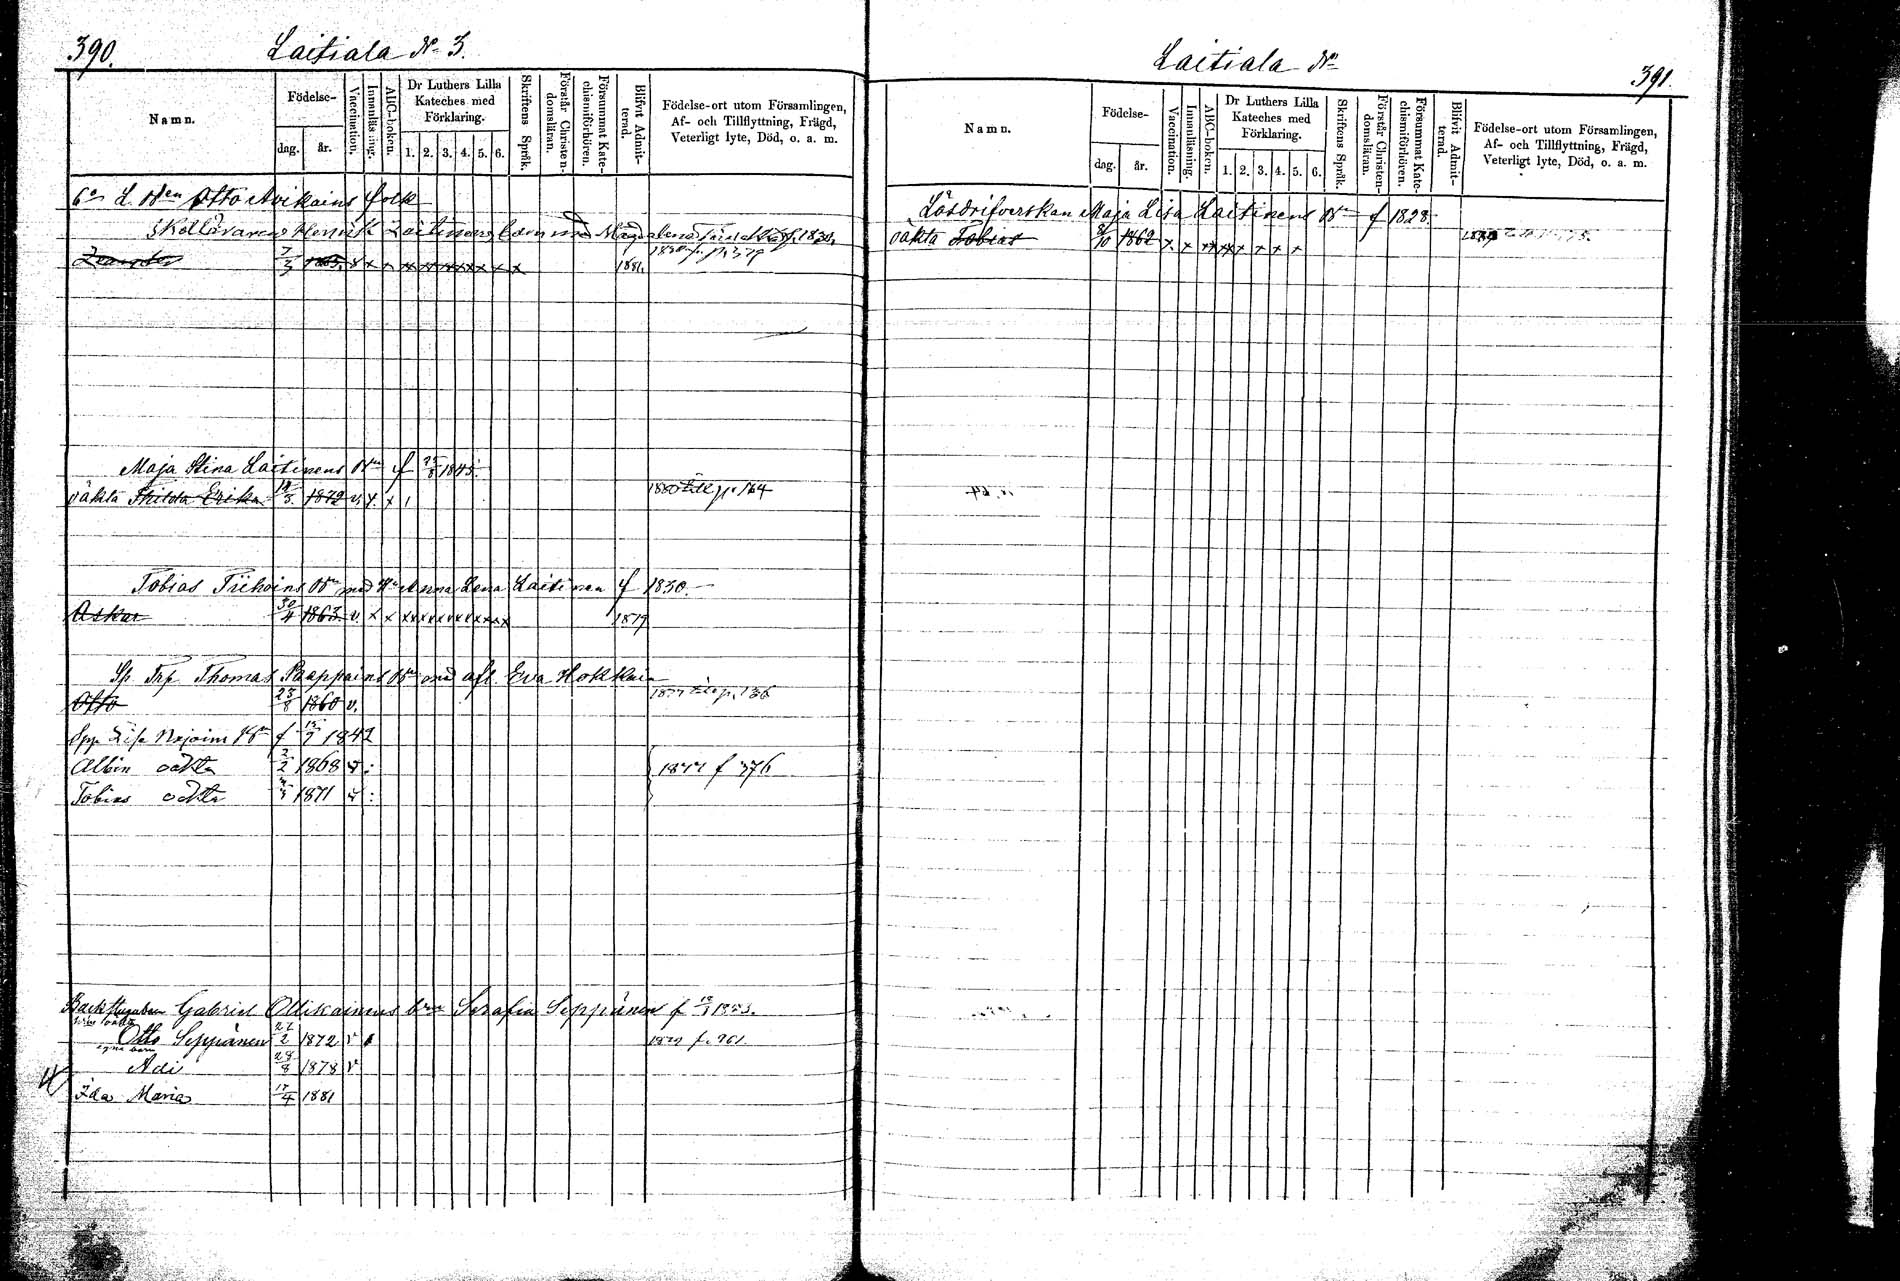 390.
Laitiala No 3.
Namn.
Födelse-
dag.
år.
Vaccination.
Innanläsning.
ABC-boken.
Dr Luthers Lilla Kateches med Förklaring.
1. 2. 3. 4. 5. 6.
Skriftens Språk.
Förstår Christendomsläran.
Försummat Katechismiförhören.
Blifvit Admitterad.
Födelse-ort utom Församlingen,
Af- och Tillflyttning, Frägd,
Veterligt lyte, Död, o. a. m.
Otto Avikains folk
Henrik Laitinens 1830.
7/3 v x x x x x x x x x 1881.
Maja Stina Laitinens f 25/8 1845.
oäkta Thilda Erika 1872 v. x. x 1 1880 p. 164
Tobias Tiihoins Anna Lena Laitinen f 1830.
Askar 30/4 1863 v. x x x x x x x x x x x x 1879
Thomas Paappains med afl. Eva Hokkain
Otto 28/8 1860 v. 1877 p. 136
Lisa f 1842
Albin oäkta 2/2 1868 v. 1877 f 376
Tobias oäkta 1871 v.
Gabriel Ollikainens Serafia Seppänen f
oäkta
Otto Seppänen 22/2 1872 v f. 961
egna barn
Adi 28/8 1878 v
Ida Maria 17/4 1881
Laitiala No
391.
Namn.
Födelse-
dag.
år.
Vaccination.
Innanläsning.
ABC-boken.
Dr Luthers Lilla Kateches med Förklaring.
1. 2. 3. 4. 5. 6.
Skriftens Språk.
Förstår Christendomsläran.
Försummat Katechismiförhören.
Blifvit Admitterad.
Födelse-ort utom Församlingen,
Af- och Tillflyttning, Frägd,
Veterligt lyte, Död, o. a. m.
Lösdrifverskan Maja Lisa Laitinens f 1828
oäkta Tobias 8/10 1862 x. x x x x x x x x